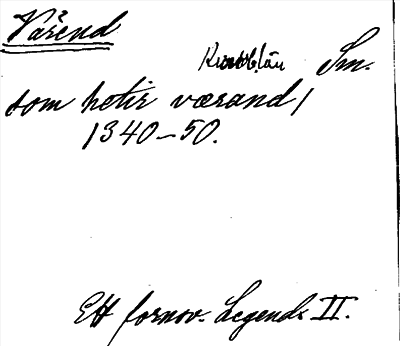 Värend
Sm.
som hetir værand/
1340-50.
Ett fornsv. Legend. II.